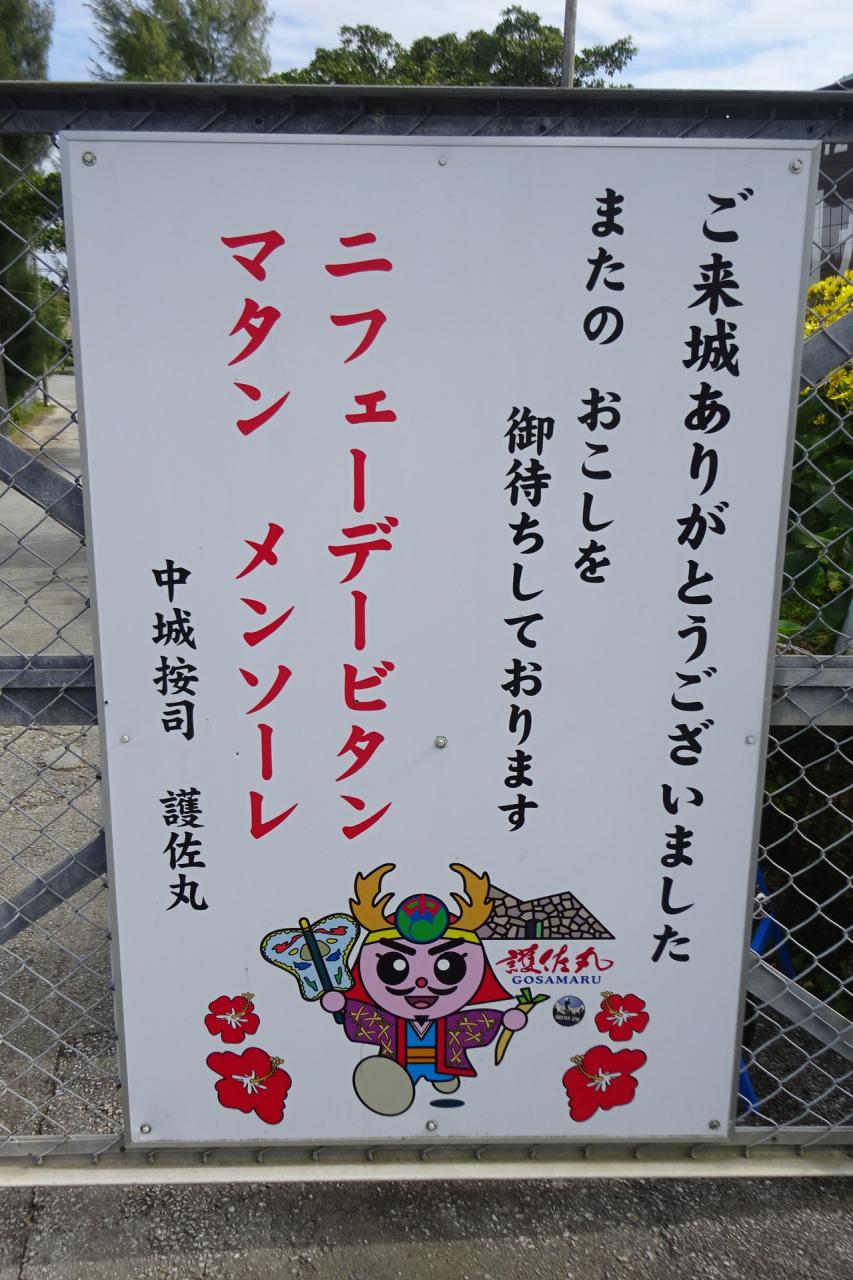 ご来城ありがとうございました
またの おこしを
御待ちしております
ニフェーデービタン
マタン メンソーレ
中城按司 護佐丸
中
護佐丸
GOSAMARU